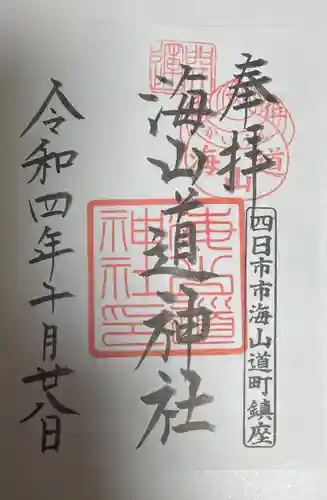 奉拝
四日市市海山道町鎮座
開運
海山道神社
海山道神社印
令和四年十月廿八日